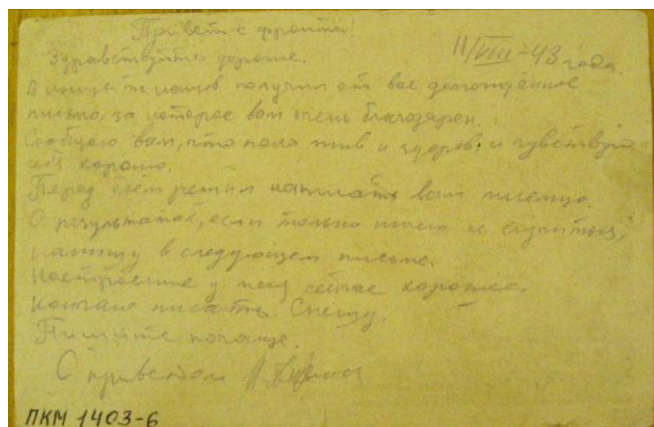 Привет с фронта!
11/VIII-43 года.
Здравствуйте дорогие.
В конце концов получил от вас долгожданное
письмо, за которое вам очень благодарен.
Сообщаю вам, что пока жив и здоров и чувствую
себя хорошо.
Перед боем решил написать вам письмецо.
О результатах, если только ничего не случится,
напишу в следующем письме.
Настроение у меня сейчас хорошее.
Кончаю писать. Спешу.
Пишите почаще.
С приветом
ПКМ 1403-6